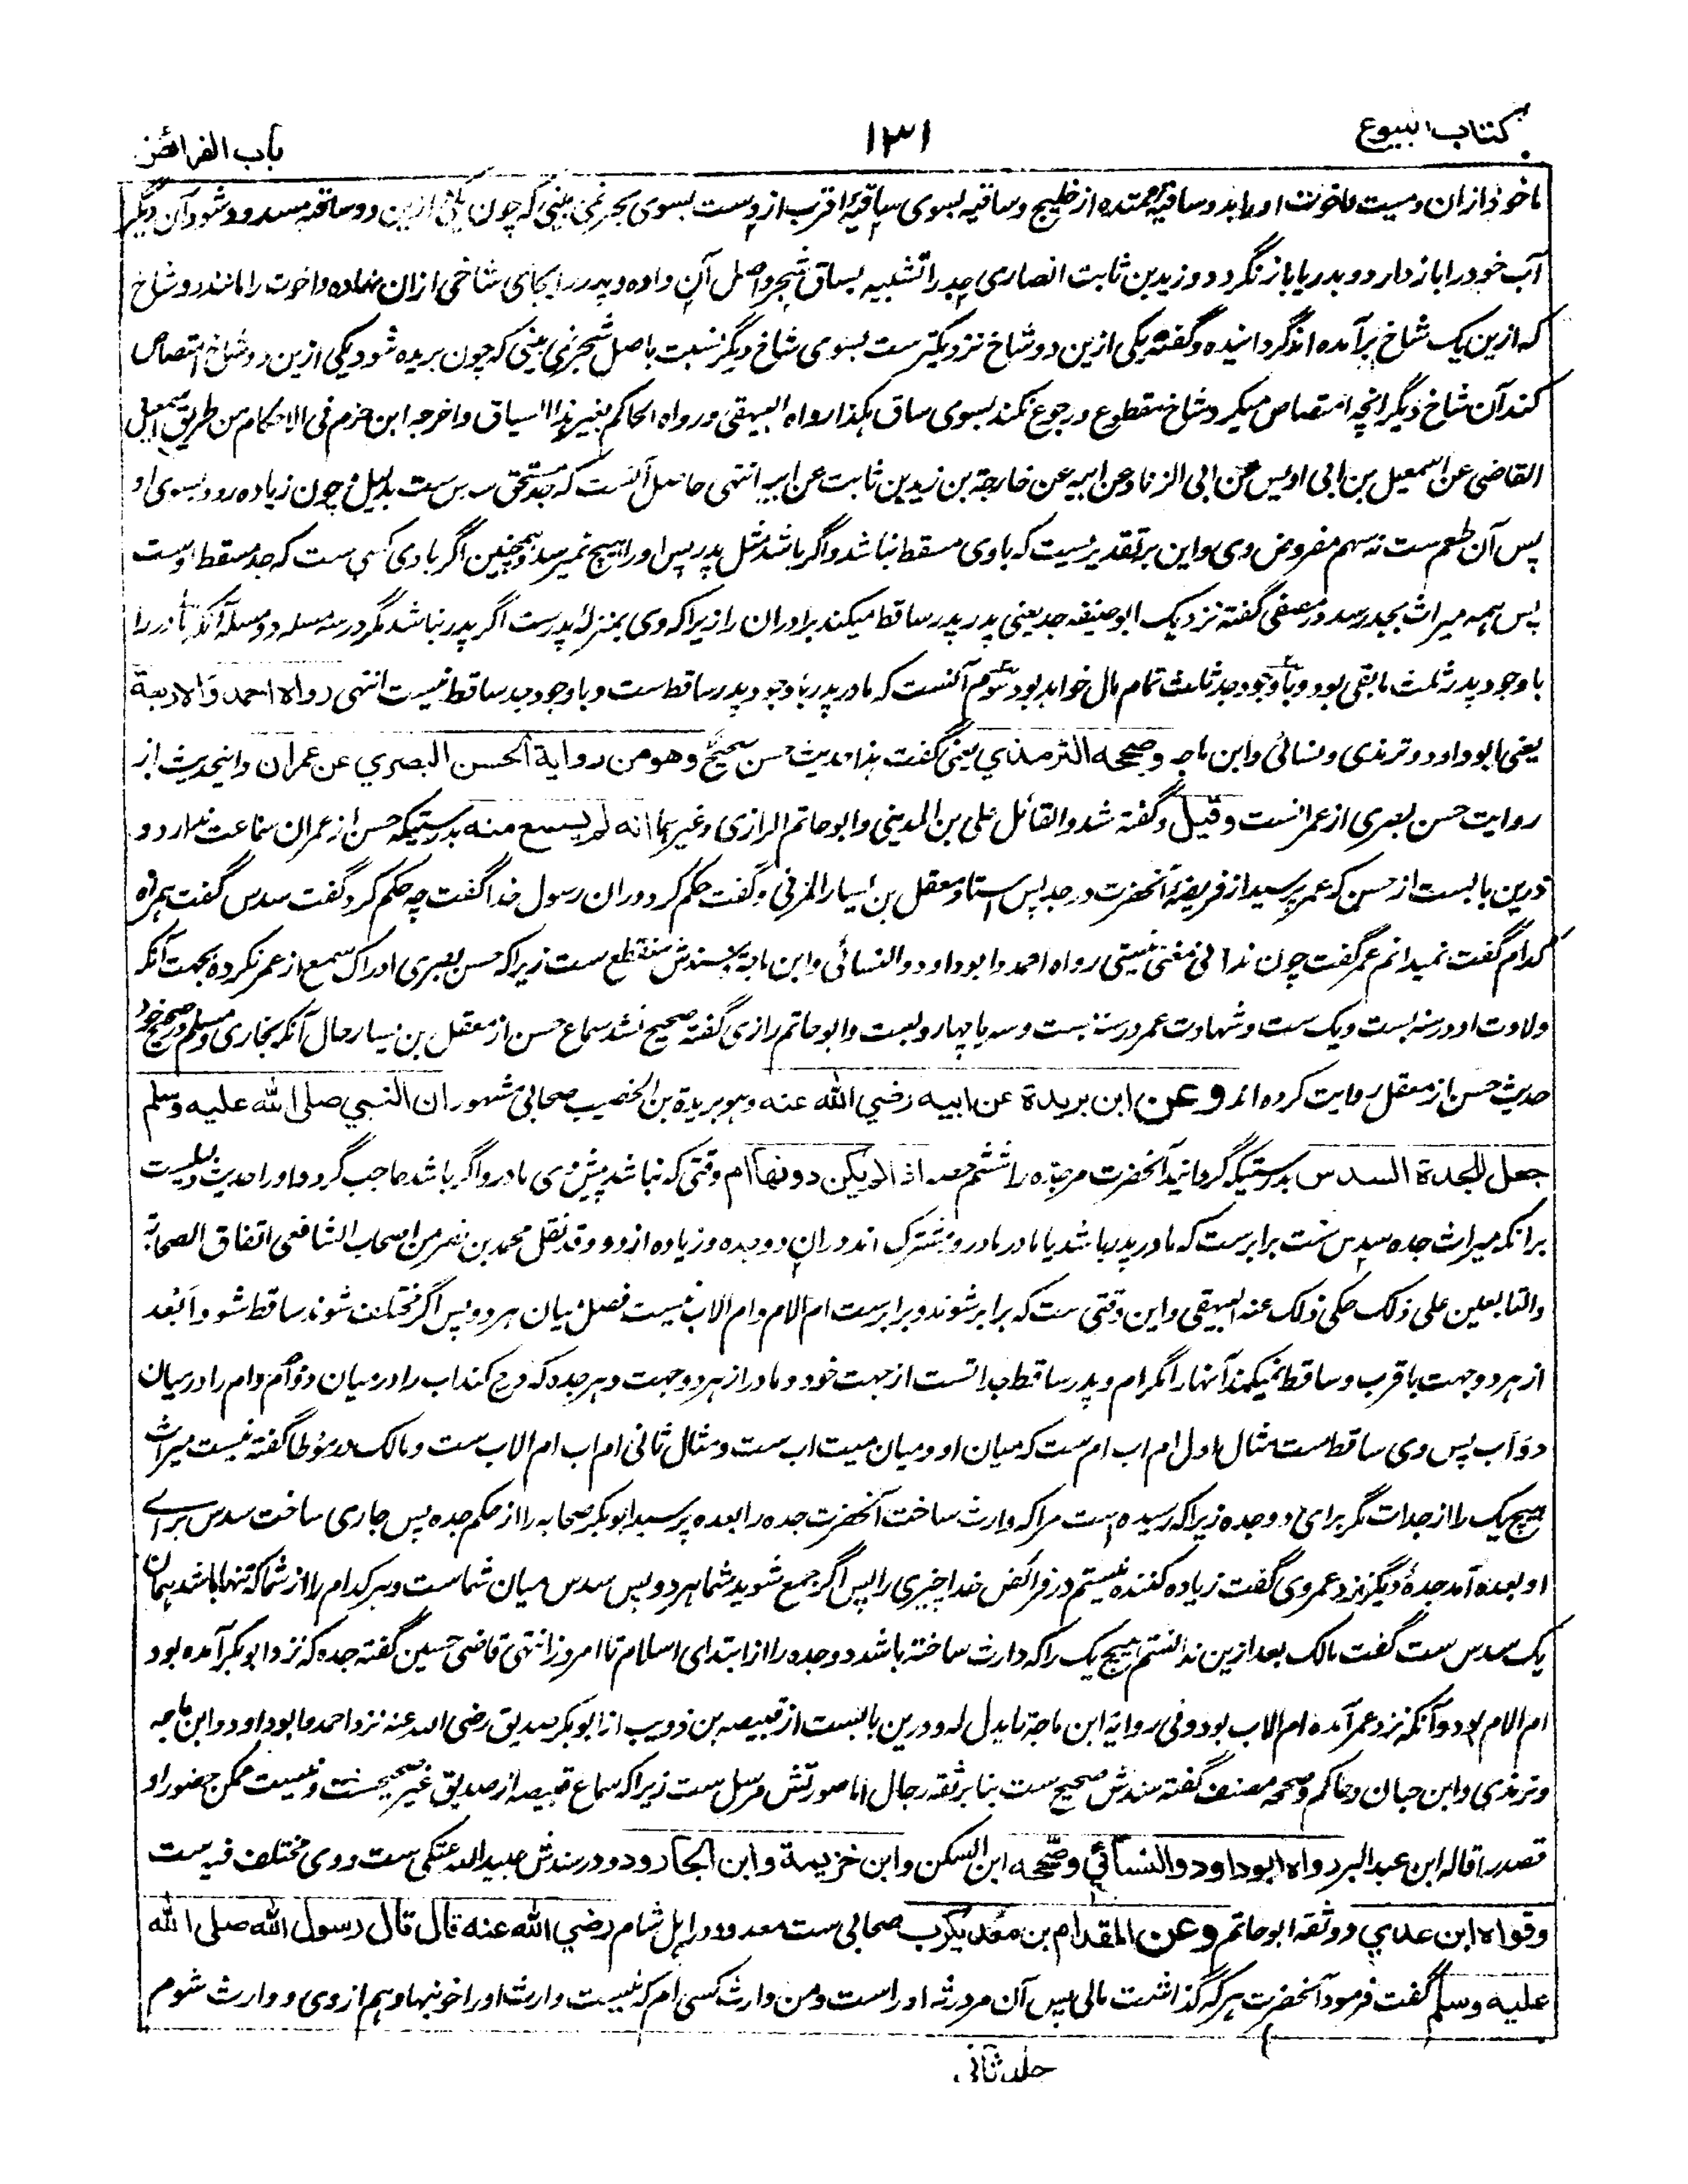 كتاب البيوع
۱۳۱
باب الفرائض
ماخوذ ازان و میت و اخوت او را بدو ساقیهٔ ممتده از خلیج و ساقیه بسوی ساقیهٔ اقرب از وست بسوی بحر نمی بینی که چون یکی ازین دو ساقیه مسدود شود آن دیگر
آب خود را باز دارد و بدریا باز نگردد و زید بن ثابت انصاری جد را تشبیه بساق شجر و اصل آن داده و پدر را بجای شاخی ازان نهاده و اخوت را مانند دو شاخ
که ازین یک شاخ برآمده اند گردانیده و گفته یکی ازین دو شاخ نزدیکترست بسوی شاخ دیگر نسبت باصل شجر نمی بینی که چون بریده شود یکی ازین دو شاخ امتصاص
کند آن شاخ دیگر انچه امتصاص میکرد شاخ مقطوع و رجوع نکند بسوی ساق هکذا رواه البیهقی و رواه الحاکم بغیر هذا السیاق و اخرجه ابن حزم فی الاحکام من طریق اسمعیل
القاضی عن اسمعیل بن ابی اویس عن ابی الزناد عن ابیه عن خارجة بن زید بن ثابت عن ابیه انتهی حاصل آنست که جد مستحق سدس ست بدلیل و چون زیاده رود بسوی او
پس آن طعم ست نه سهم مفروض وی و این بر تقدیریست که با وی مسقط نباشد و اگر باشد مثل پدر پس او را هیچ نمیرسد و همچنین اگر با وی کسی ست که جد مسقط اوست
پس همه میراث بجد رسد و در مصفی گفته نزدیک ابو حنیفه جد یعنی پدر پدر ساقط میکند برادران را زیرا که وی بمنزلهٔ پدرست اگر پدر نباشد مگر در سه مسله دو مسله آنکه مادر را
با وجود پدر ثلث مابقی بود و با وجود جد ثلث تمام مال خواهد بود سوم آنست که مادر پدر با وجود پدر ساقط ست و با وجود جد ساقط نیست انتهی رواه احمد والاربعة
یعنی ابو داود و ترمذی و نسائی و ابن ماجه وصححه الترمذي یعنی گفت هذا حدیث حسن صحیح وهو من رواية الحسن البصري عن عمران و این حدیث از
روایت حسن بصری از عمرانست وقيل و گفته شد والقائل علی بن المدینی و ابو حاتم الرازی و غیرهما انه لم يسمع منه بدرستیکه حسن از عمران سماعت ندارد و
درین بابست از حسن که عمر پرسید از فریضهٔ آنحضرت در جد پس استاد معقل بن یسار المزنی و گفت حکم کرد دران رسول خدا گفت چه حکم کرد گفت سدس گفت همراه
کدام گفت نمیدانم عمر گفت چون ندانی مغنی نیستی رواه احمد و ابو داود و النسائی و ابن ماجة سندش منقطع ست زیرا که حسن بصری ادراک سمع از عمر نکرده بجهت آنکه
ولادت او در سنه بست و یک ست و شهادت عمر در سنه بست و سه یا چهار و بست و ابو حاتم رازی گفته صحیح نشد سماع حسن از معقل بن یسار حال آنکه بخاری و مسلم در صحیح خود
حدیث حسن از معقل روایت کرده اند وعن ابن بريدة عن ابيه رضي الله عنه و هو بریدة بن الحصیب صحابی مشهور ان النبي صلى الله عليه وسلم
جعل للجدة السدس بدرستیکه گردانید آنحضرت مر جده را ششم حصه اذا لم يكن دونها ام وقتی که نباشد پیش وی مادر و اگر باشد حاجب گردد او را حدیث دلیلست
برانکه میراث جده سدس ست برابرست که مادر پدر باشد یا مادر مادر و مشترک اند دران دو جده و زیاده از دو و قد نقل محمد بن نصر من اصحاب الشافعی اتفاق الصحابة
والتابعین علی ذلک حکی ذلک عنه البیهقی و این وقتی ست که برابر شوند و برابرست ام الام و ام الاب نیست فصل میان هر دو پس اگر مختلف شوند ساقط شود ابعد
از هر دو جهت باقرب و ساقط نمیکند آنها را مگر ام و پدر ساقط جداتست از جهت خود و مادر از هر دو جهت و هر جده که درج کند اب را در میان دو ام و ام را در میان
دو اب پس وی ساقط ست مثال اول ام اب ام ست که میان او و میان میت اب ست و مثال ثانی ام اب ام الاب ست و مالک در موطا گفته نیست میراث
هیچ یک را از جدات مگر برای دو جده زیرا که رسیده است مرا که وارث ساخت آنحضرت جده را بعده پرسید ابو بکر صحابه را از حکم جده پس جاری ساخت سدس برای
او بعده آمد جدهٔ دیگر نزد عمر وی گفت زیاده کننده نیستم در فرائض خدا چیزی را پس اگر جمع شوید شما هر دو پس سدس میان شماست و هر کدام را از شما که تنها باشد همان
یک سدس ست گفت مالک بعد ازین ندانستم هیچ یک را که وارث ساخته باشد دو جده را از ابتدای اسلام تا امروز انتهی قاضی حسین گفته جده که نزد ابو بکر آمده بود
ام الام بود و آنکه نزد عمر آمده ام الاب بود و فی روایة ابن ماجة ما یدل له و درین بابست از قبیصه بن ذویب از ابو بکر صدیق رضی الله عنه نزد احمد و ابو داود و ابن ماجه
و ترمذی و ابن حبان و حاکم و صححه مصنف گفته سندش صحیح ست بنا بر ثقه رجال اما صورتش مرسل ست زیرا که سماع قبیصه از صدیق غیر صحیحست و نیست ممکن حضور او
قصه را قاله ابن عبد البر رواه ابو داود والنسائي وصححه ابن السكن وابن خزيمة وابن الجارود و در سندش عبید الله عتکی ست و وی مختلف فیه ست
وقواه ابن عدي و وثقه ابو حاتم وعن المقدام بن معدیکرب صحابی ست معدود در اهل شام رضي الله عنه قال قال رسول الله صلى الله
عليه وسلم گفت فرمود آنحضرت هر که گذاشت مالی پس آن مر ورثه او راست و من وارث کسی ام که نیست وارث او را خونبها دهم از وی و وارث شوم
جلد ثانی